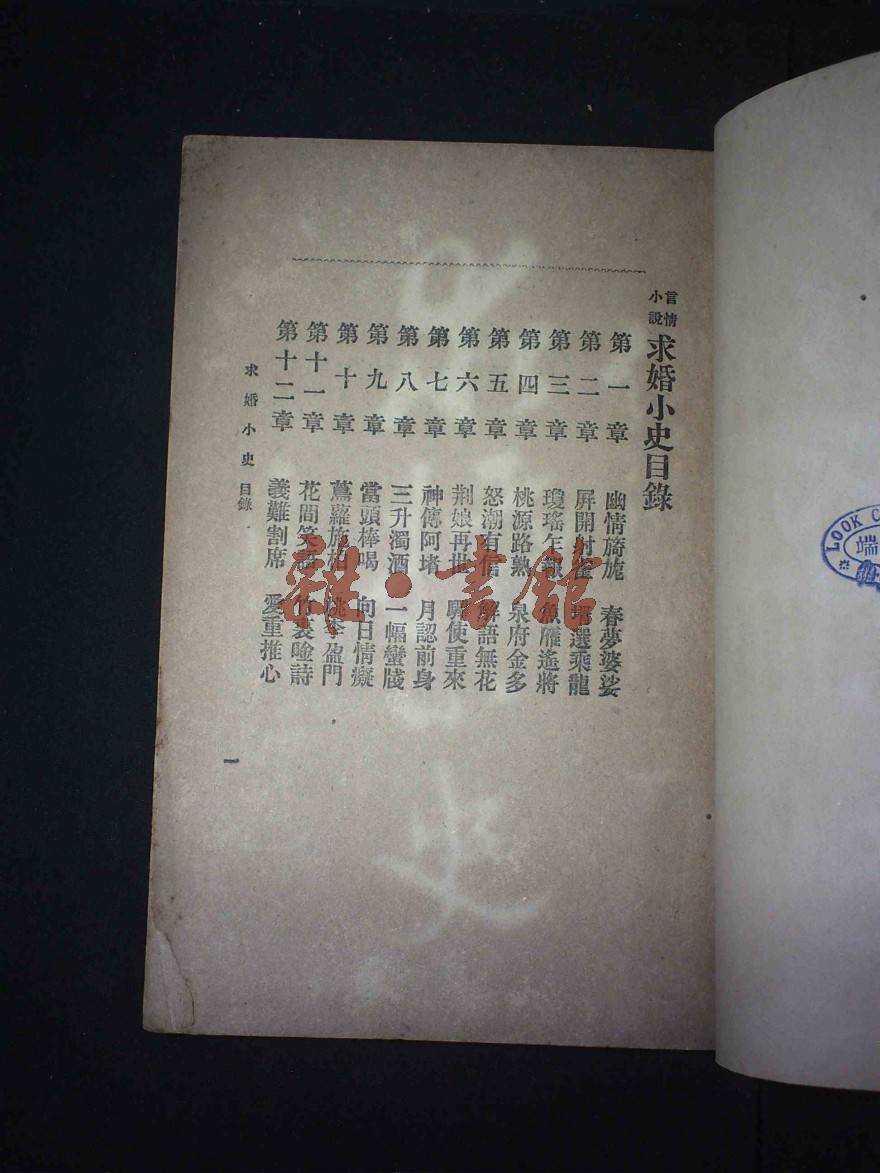 言情小說 求婚小史目錄
第一章 幽情旖旎 春夢婆娑
第二章 屏開射雀 壻選乘龍
第三章 瓊瑤乍報 魚雁遙將
第四章 桃源路熟 泉府金多
第五章 怒潮有信 解語無花
第六章 荆娘再世 驛使重來
第七章 神傳阿堵 月認前身
第八章 三升濁酒 一幅蠻牋
第九章 當頭棒喝 向日情癡
第十章 蔦蘿施柏 桃李盈門
第十一章 花間笑語 竹裏唫詩
第十二章 義難割席 愛重推心
求婚小史 目錄
一
雜·書館
LOOK C
端